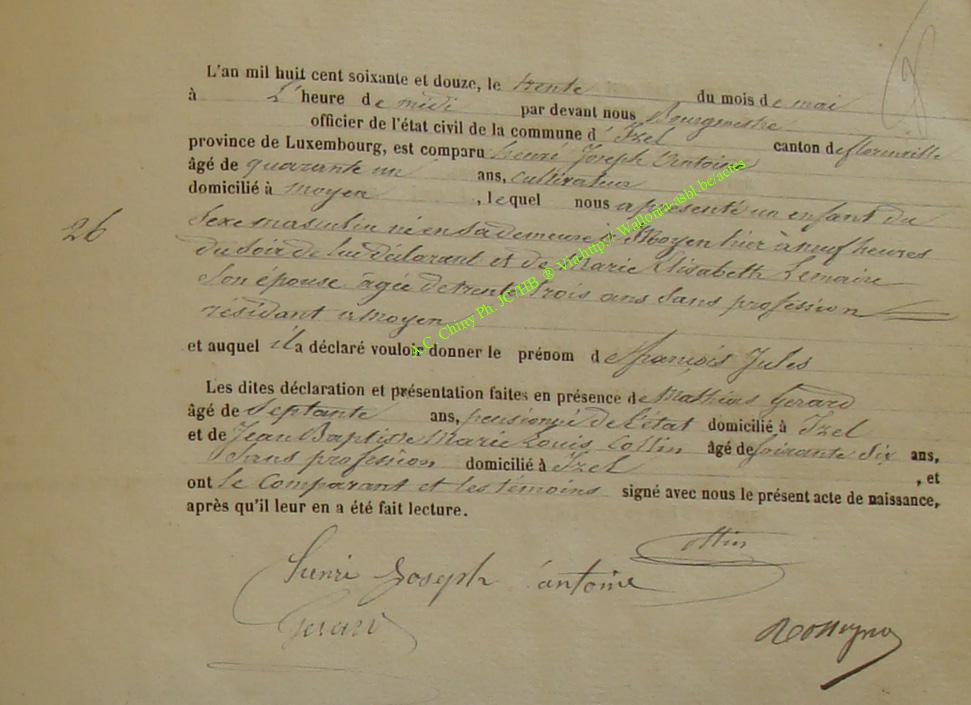 L'an mil huit cent soixante et douze, le trente du mois de mai
à L'heure de midi par devant nous Bourgmestre
officier de l'état civil de la commune d'Izel canton de florenville
province de Luxembourg, est comparu henri Joseph Antoine
âgé de quarante un ans, cultivateur
domicilié à moyen, lequel nous a présenté un enfant du
26
Sexe masculin né en sa demeure à Moyen hier à neuf heures
du Soir de lui déclarant et de Marie Elisabeth Lemaire
Son épouse agée de trente trois ans Sans profession
résidant a moyen
et auquel il a déclaré vouloir donner le prénom de françois Jules
Les dites déclaration et présentation faites en présence de Mathias Gerard
âgé de Septante ans, pensionné de l'état domicilié à Izel
et de Jean Baptiste Marie Louis Collin âgé de Soixante Six ans,
Sans profession domicilié à Izel, et
ont le Comparant et les témoins signé avec nous le présent acte de naissance,
après qu'il leur en a été fait lecture.
Collin
henri Joseph antoine
Gerard
A.C. Chiny Ph. JC HB ® Via http://Wallonia-asbl.be/actes